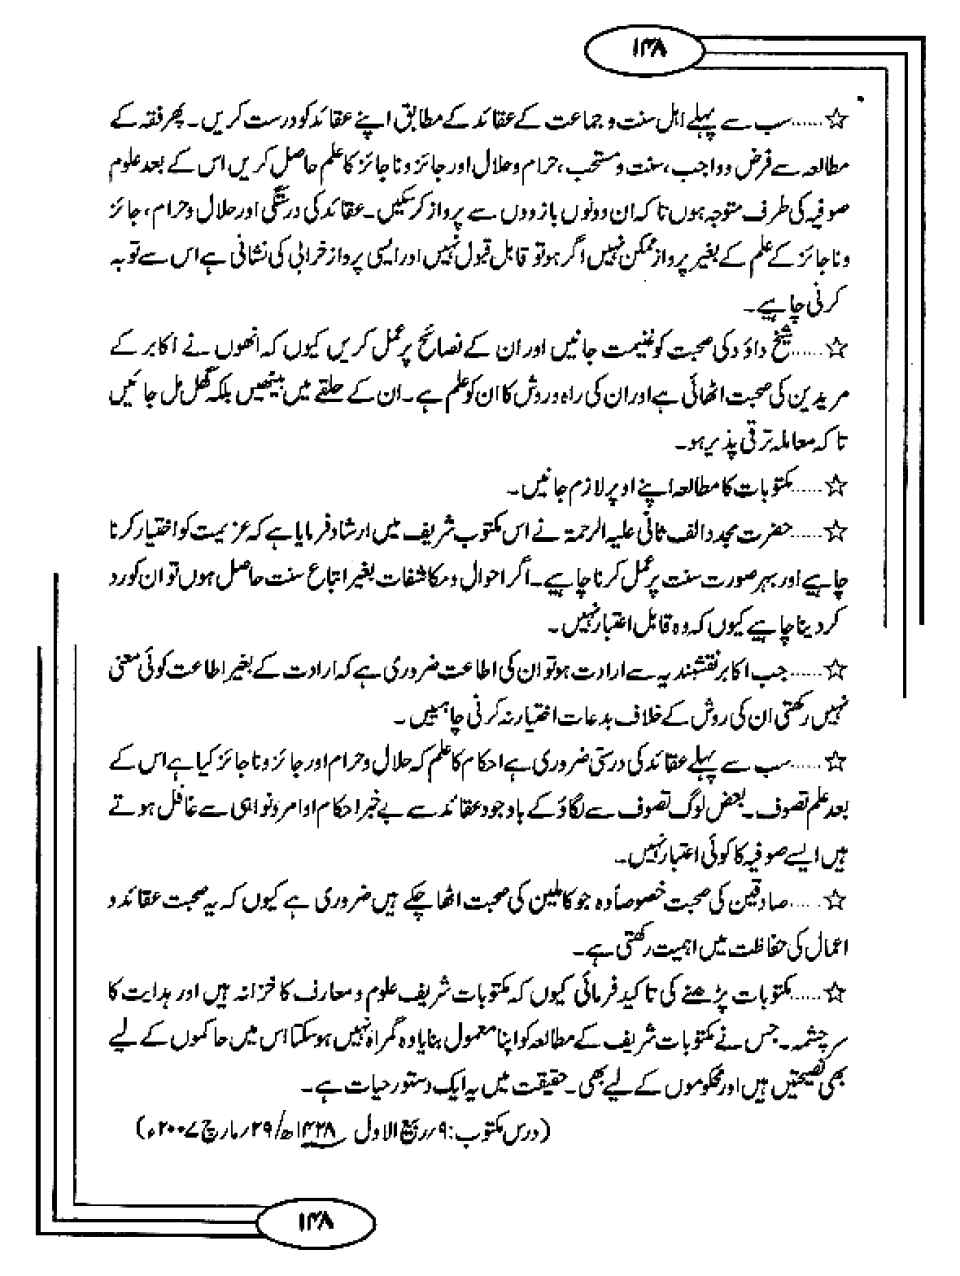 ۱۳۸
☆......سب سے پہلے اہل سنت و جماعت کے عقائد کے مطابق اپنے عقائد کو درست کریں۔ پھر فقہ کے
مطالعہ سے فرض و واجب، سنت و مستحب، حرام و حلال اور جائز و ناجائز کا علم حاصل کریں اس کے بعد علوم
صوفیہ کی طرف متوجہ ہوں تاکہ ان دونوں بازووں سے پرواز کرسکیں۔ عقائد کی درستگی اور حلال و حرام، جائز
و ناجائز کے علم کے بغیر پرواز ممکن نہیں اگر ہو تو قابل قبول نہیں اور ایسی پرواز خرابی کی نشانی ہے اس سے توبہ
کرنی چاہیے۔
☆......شیخ داؤد کی صحبت کو غنیمت جانیں اور ان کے نصائح پر عمل کریں کیوں کہ انھوں نے اکابر کے
مریدین کی صحبت اٹھائی ہے اور ان کی راہ و روش کا ان کو علم ہے۔ ان کے حلقے میں بیٹھیں بلکہ گھل مل جائیں
تاکہ معاملہ ترقی پذیر ہو۔
☆......مکتوبات کا مطالعہ اپنے اوپر لازم جانیں۔
☆......حضرت مجدد الف ثانی علیہ الرحمۃ نے اس مکتوب شریف میں ارشاد فرمایا ہے کہ عزیمت کو اختیار کرنا
چاہیے اور بہر صورت سنت پر عمل کرنا چاہیے۔ اگر احوال و مکاشفات بغیر اتباع سنت حاصل ہوں تو ان کو رد
کر دینا چاہیے کیوں کہ وہ قابل اعتبار نہیں۔
☆......جب اکابر نقشبندیہ سے ارادت ہو تو ان کی اطاعت ضروری ہے کہ ارادت کے بغیر اطاعت کوئی معنی
نہیں رکھتی ان کی روش کے خلاف بدعات اختیار نہ کرنی چاہئیں۔
☆......سب سے پہلے عقائد کی درستی ضروری ہے احکام کا علم کہ حلال و حرام اور جائز و ناجائز کیا ہے اس کے
بعد علم تصوف۔ بعض لوگ تصوف سے لگاؤ کے باوجود عقائد سے بے خبر احکام اوامر و نواہی سے غافل ہوتے
ہیں ایسے صوفیہ کا کوئی اعتبار نہیں۔
☆......صادقین کی صحبت خصوصاً وہ جو کاملین کی صحبت اٹھا چکے ہیں ضروری ہے کیوں کہ یہ صحبت عقائد و
اعمال کی حفاظت میں اہمیت رکھتی ہے۔
☆......مکتوبات پڑھنے کی تاکید فرمائی کیوں کہ مکتوبات شریف علوم و معارف کا خزانہ ہیں اور ہدایت کا
سرچشمہ۔ جس نے مکتوبات شریف کے مطالعہ کو اپنا معمول بنایا وہ گمراہ نہیں ہوسکتا اس میں حاکموں کے لیے
بھی نصیحتیں ہیں اور محکوموں کے لیے بھی۔ حقیقت میں یہ ایک دستور حیات ہے۔
(درس مکتوب: ۹/ربیع الاول ۱۴۲۸ھ/۲۹/مارچ ۲۰۰۷ء)
۱۳۸